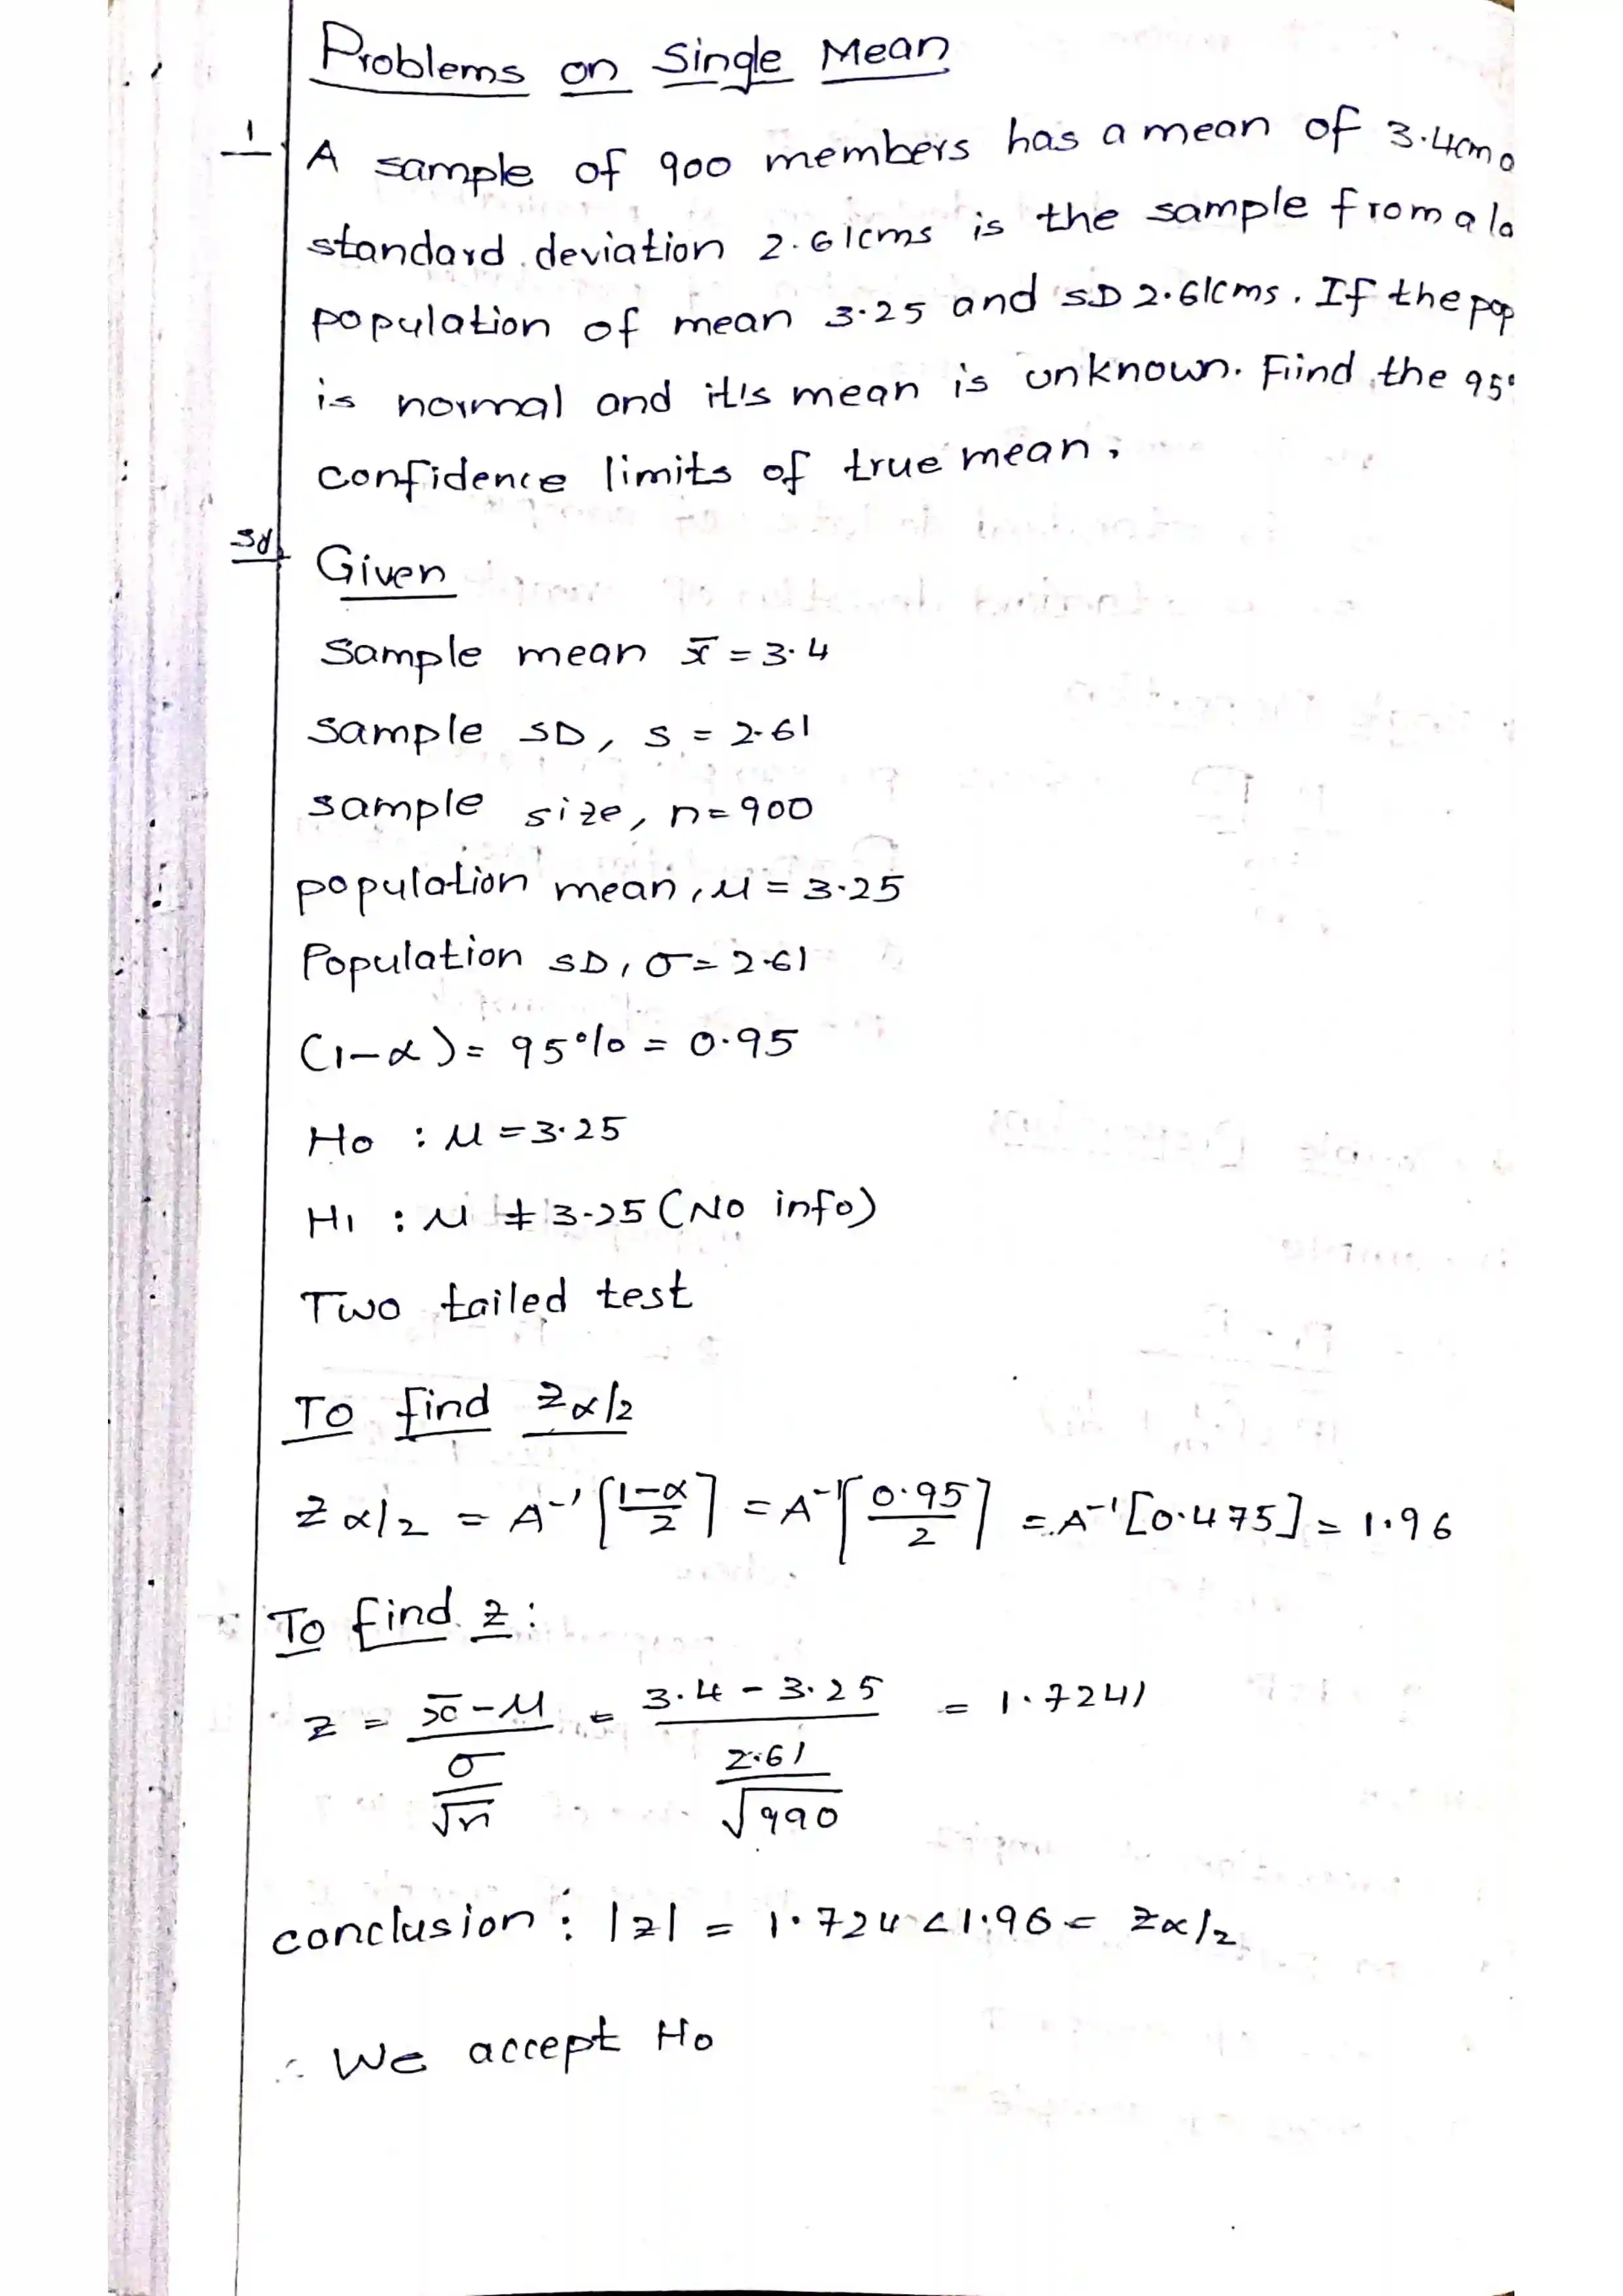 Problems on Single Mean
1 A sample of 900 members has a mean of 3.4cm
standard deviation 2.61cms is the sample from a
population of mean 3.25 and SD 2.61cms. If the pop
is normal and it's mean is unknown. Fiind the 95
confidence limits of true mean.
Sol Given
Sample mean x̄ = 3.4
Sample SD, s = 2.61
sample size, n=900
population mean, μ = 3.25
Population SD, σ = 2.61
(1-α) = 95% = 0.95
H0 : μ = 3.25
H1 : μ ≠ 3.25 (No info)
Two tailed test
To find Zα/2
Zα/2 = A⁻¹[(1-α)/2] = A⁻¹[0.95/2] = A⁻¹[0.475] = 1.96
To find z :
z = (x̄ - μ)/(σ/√n) = (3.4 - 3.25)/(2.61/√990) = 1.7241
conclusion : |z| = 1.724 < 1.96 = Zα/2
∴ We accept H0